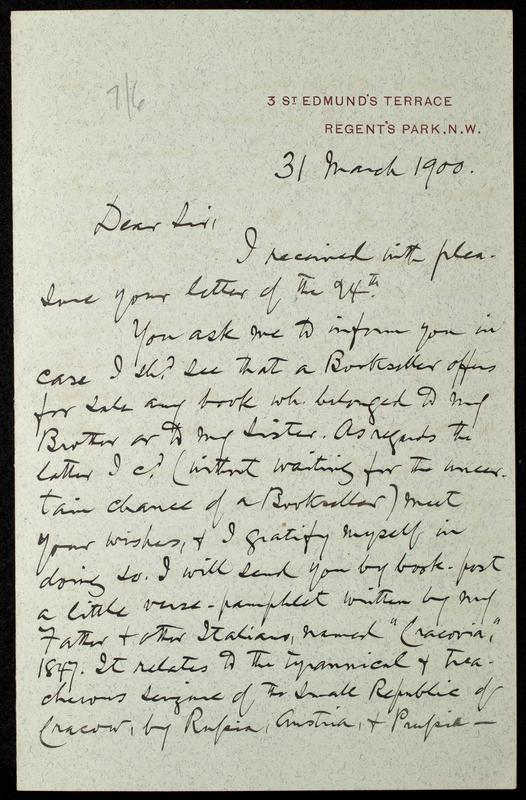 7/6
3 ST EDMUND'S TERRACE
REGENT'S PARK. N.W.
31 March 1900.
Dear Sir,
I received with plea-
sure your letter of the 24th.
You ask me to inform you in
case I shd. see that a Bookseller offers
for sale any book wh. belonged to my
Brother or to my Sister. As regards the
latter I cd. (without waiting for the uncer-
tain chance of a Bookseller) meet
your wishes, & I gratify myself in
doing so. I will send you by book-post
a little verse-pamphlet written by my
Father & other Italians, named "Cracovia,"
1847. It relates to the tyrannical & trea-
cherous seizure of the small Republic of
Cracow, by Russia, Austria, & Prussia —